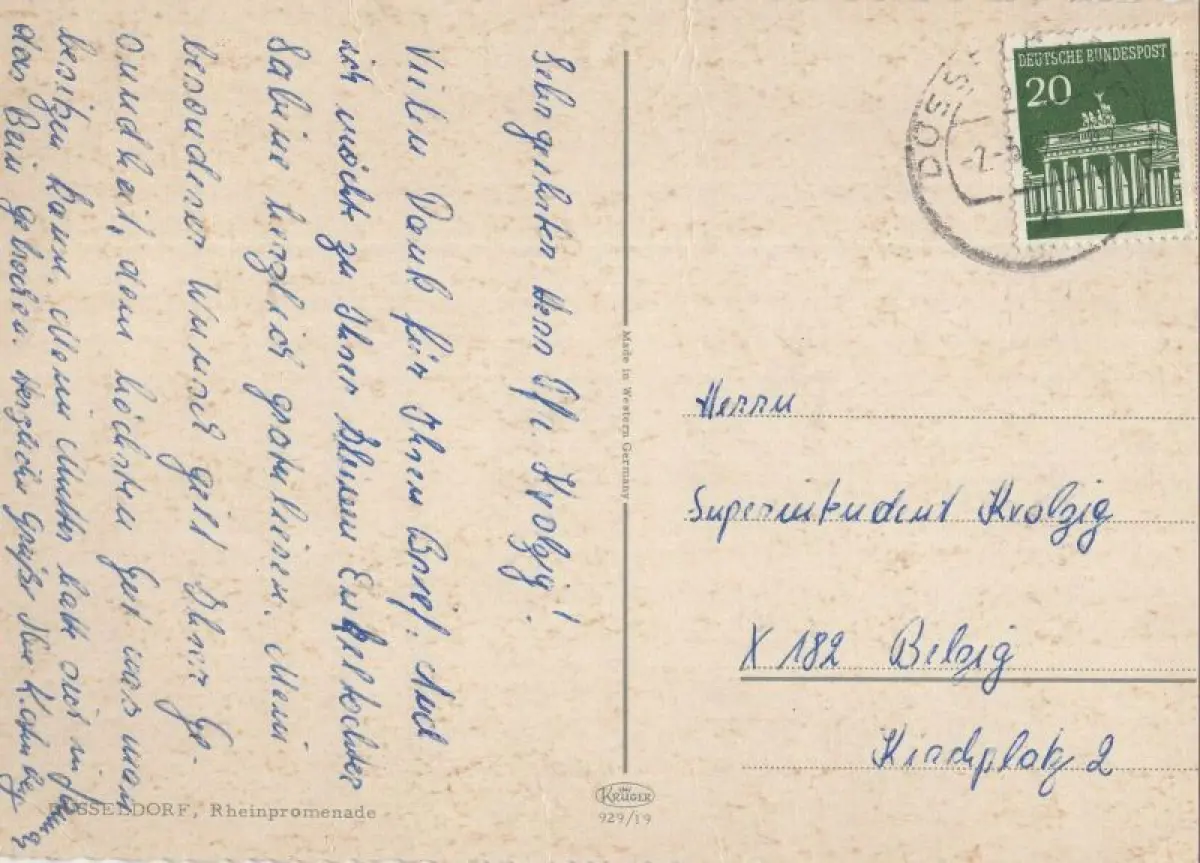 Sehr geehrter Herr Krolzig!
Vielen Dank für Ihren Brief. Auch
ich möchte zu Ihrer kleinen Enkeltochter
Sabine herzlich gratulieren. Mein
besonderer Wunsch gilt Ihrer Ge-
sundheit, dem höchsten Gut was man
besitzen kann. Meine Mutter hatte sich im
das Bein gebrochen. Herzliche Grüße Ihre
DÜSSELDORF, Rheinpromenade
Made in Western Germany
KRÜGER
929/19
DEUTSCHE BUNDESPOST
20
DÜSS
-2.-
Herrn
Superintendent Krolzig
X 182 Belzig
Kirchplatz 2